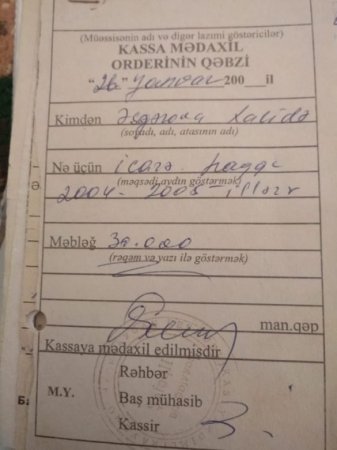 (Müəssisənin adı və digər lazımi göstəricilər)
KASSA MƏDAXİL
ORDERİNİN QƏBZİ
"26" Yanvar 200___il
Kimdən Əsgərova Xalidə
(soyadı, adı, atasının adı)
Nə üçün icarə haqqı
(məqsədi aydın göstərmək)
2004-2005 illər
Məbləğ 39.000
(rəqəm və yazı ilə göstərmək)
man.qəp
Kassaya mədaxil edilmişdir
Rəhbər
M.Y. Baş mühasib
Kassir